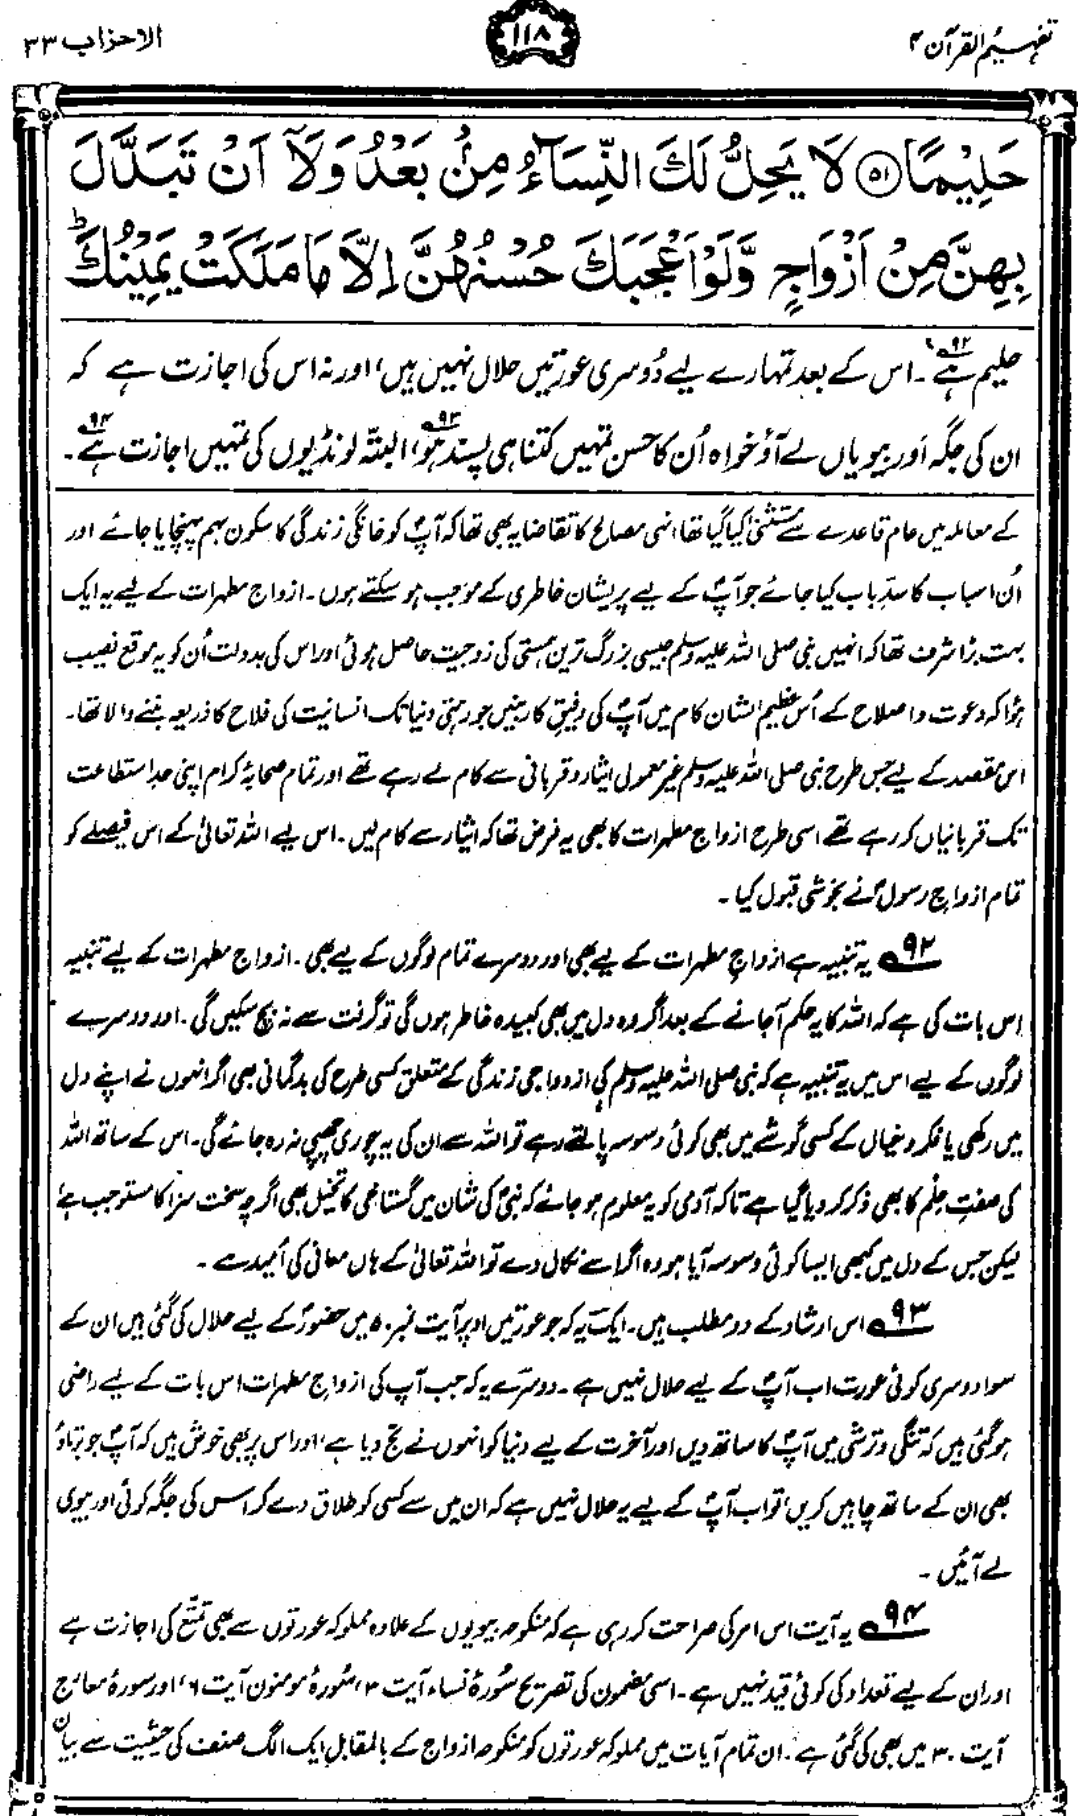 تفہیم القرآن ۴
۱۱۸
الاحزاب ۳۳
حَلِيْمًا ﴿۵۱﴾ لَا يَحِلُّ لَكَ النِّسَآءُ مِنْۢ بَعْدُ وَلَآ اَنْ تَبَدَّلَ
بِهِنَّ مِنْ اَزْوَاجٍ وَّلَوْ اَعْجَبَكَ حُسْنُهُنَّ اِلَّا مَا مَلَكَتْ يَمِيْنُكَ ؕ
حلیم ہے۹۲۔ اس کے بعد تمہارے لیے دُوسری عورتیں حلال نہیں ہیں، اور نہ اس کی اجازت ہے کہ
ان کی جگہ اَور بیویاں لے آؤ خواہ اُن کا حسن تمہیں کتنا ہی پسند ہو۹۳، البتّہ لونڈیوں کی تمہیں اجازت ہے۹۴۔
کے معاملہ میں عام قاعدے سے مستثنیٰ کیا گیا تھا، انہی مصالح کا تقاضا یہ بھی تھا کہ آپؐ کو خانگی زندگی کا سکون بہم پہنچایا جائے اور
اُن اسباب کا سدِّباب کیا جائے جو آپؐ کے لیے پریشان خاطری کے موجب ہو سکتے ہوں۔ ازواج مطہرات کے لیے یہ ایک
بہت بڑا شرف تھا کہ انہیں نبی صلی اللہ علیہ وسلم جیسی بزرگ ترین ہستی کی زوجیت حاصل ہوئی اور اس کی بدولت اُن کو یہ موقع نصیب
ہؤا کہ دعوت و اصلاح کے اُس عظیم الشان کام میں آپؐ کی رفیقِ کار بنیں جو رہتی دنیا تک انسانیت کی فلاح کا ذریعہ بننے والا تھا۔
اس مقصد کے لیے جس طرح نبی صلی اللہ علیہ وسلم غیر معمولی ایثار و قربانی سے کام لے رہے تھے اور تمام صحابۂ کرام اپنی حدِ استطاعت
تک قربانیاں کر رہے تھے اسی طرح ازواج مطہرات کا بھی یہ فرض تھا کہ ایثار سے کام لیں۔ اس لیے اللہ تعالیٰ کے اس فیصلے کو
تمام ازواجِ رسولؐ نے بخوشی قبول کیا۔
۹۲ یہ تنبیہ ہے ازواجِ مطہرات کے لیے بھی اور دوسرے تمام لوگوں کے لیے بھی۔ ازواج مطہرات کے لیے تنبیہ
اِس بات کی ہے کہ اللہ کا یہ حکم آجانے کے بعد اگر وہ دل میں بھی کبیدہ خاطر ہوں گی تو گرفت سے نہ بچ سکیں گی۔ اور دوسرے
لوگوں کے لیے اس میں یہ تنبیہ ہے کہ نبی صلی اللہ علیہ وسلم کی ازدواجی زندگی کے متعلق کسی طرح کی بدگمانی بھی اگر انہوں نے اپنے دل
میں رکھی یا فکر و خیال کے کسی گوشے میں بھی کوئی وسوسہ پالتے رہے تو اللہ سے ان کی یہ چوری چھپی نہ رہ جائے گی۔ اس کے ساتھ اللہ
کی صفتِ حِلْم کا بھی ذکر کر دیا گیا ہے تاکہ آدمی کو یہ معلوم ہو جائے کہ نبیؐ کی شان میں گستاخی کا تخیل بھی اگرچہ سخت سزا کا مستوجب ہے،
لیکن جس کے دل میں کبھی ایسا کوئی وسوسہ آیا ہو وہ اگر اسے نکال دے تو اللہ تعالیٰ کے ہاں معافی کی اُمید ہے۔
۹۳ اس ارشاد کے دو مطلب ہیں۔ ایک یہ کہ جو عورتیں اوپر آیت نمبر ۵۰ میں حضورؐ کے لیے حلال کی گئی ہیں ان کے
سوا دوسری کوئی عورت اب آپؐ کے لیے حلال نہیں ہے۔ دوسرے یہ کہ جب آپ کی ازواجِ مطہرات اس بات کے لیے راضی
ہو گئی ہیں کہ تنگی و ترشی میں آپؐ کا ساتھ دیں اور آخرت کے لیے دنیا کو انہوں نے تج دیا ہے، اور اس پر بھی خوش ہیں کہ آپؐ جو برتاؤ
بھی ان کے ساتھ چاہیں کریں، تو اب آپؐ کے لیے یہ حلال نہیں ہے کہ ان میں سے کسی کو طلاق دے کر اس کی جگہ کوئی اور بیوی
لے آئیں۔
۹۴ یہ آیت اس امر کی صراحت کر رہی ہے کہ منکوحہ بیویوں کے علاوہ مملوکہ عورتوں سے بھی تمتّع کی اجازت ہے
اور ان کے لیے تعداد کی کوئی قید نہیں ہے۔ اسی مضمون کی تصریح سُورۂ نساء آیت ۳، سُورۂ مومنون آیت ۶، اور سورۂ معارج
آیت ۳۰ میں بھی کی گئی ہے۔ ان تمام آیات میں مملوکہ عورتوں کو منکوحہ ازواج کے بالمقابل ایک الگ صنف کی حیثیت سے بیان